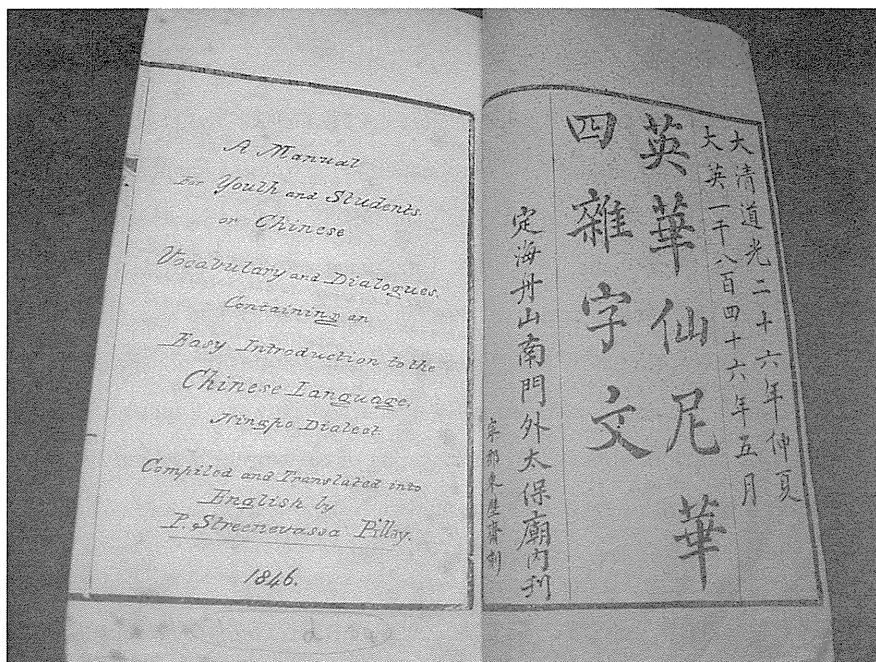 A Manual
For Youth and Students.
or Chinese
Vocabulary and Dialogues.
Containing an
Easy Introduction to the
Chinese Language,
Ningpo Dialect.
Compiled and Translated into
English by
P. Streenevassa Pillay.
1846.
大清道光二十六年仲夏
大英一千八百四十六年五月
英華仙尼華
四雜字文
定海舟山南門外太保廟內刊
寧郡東壁齋刻